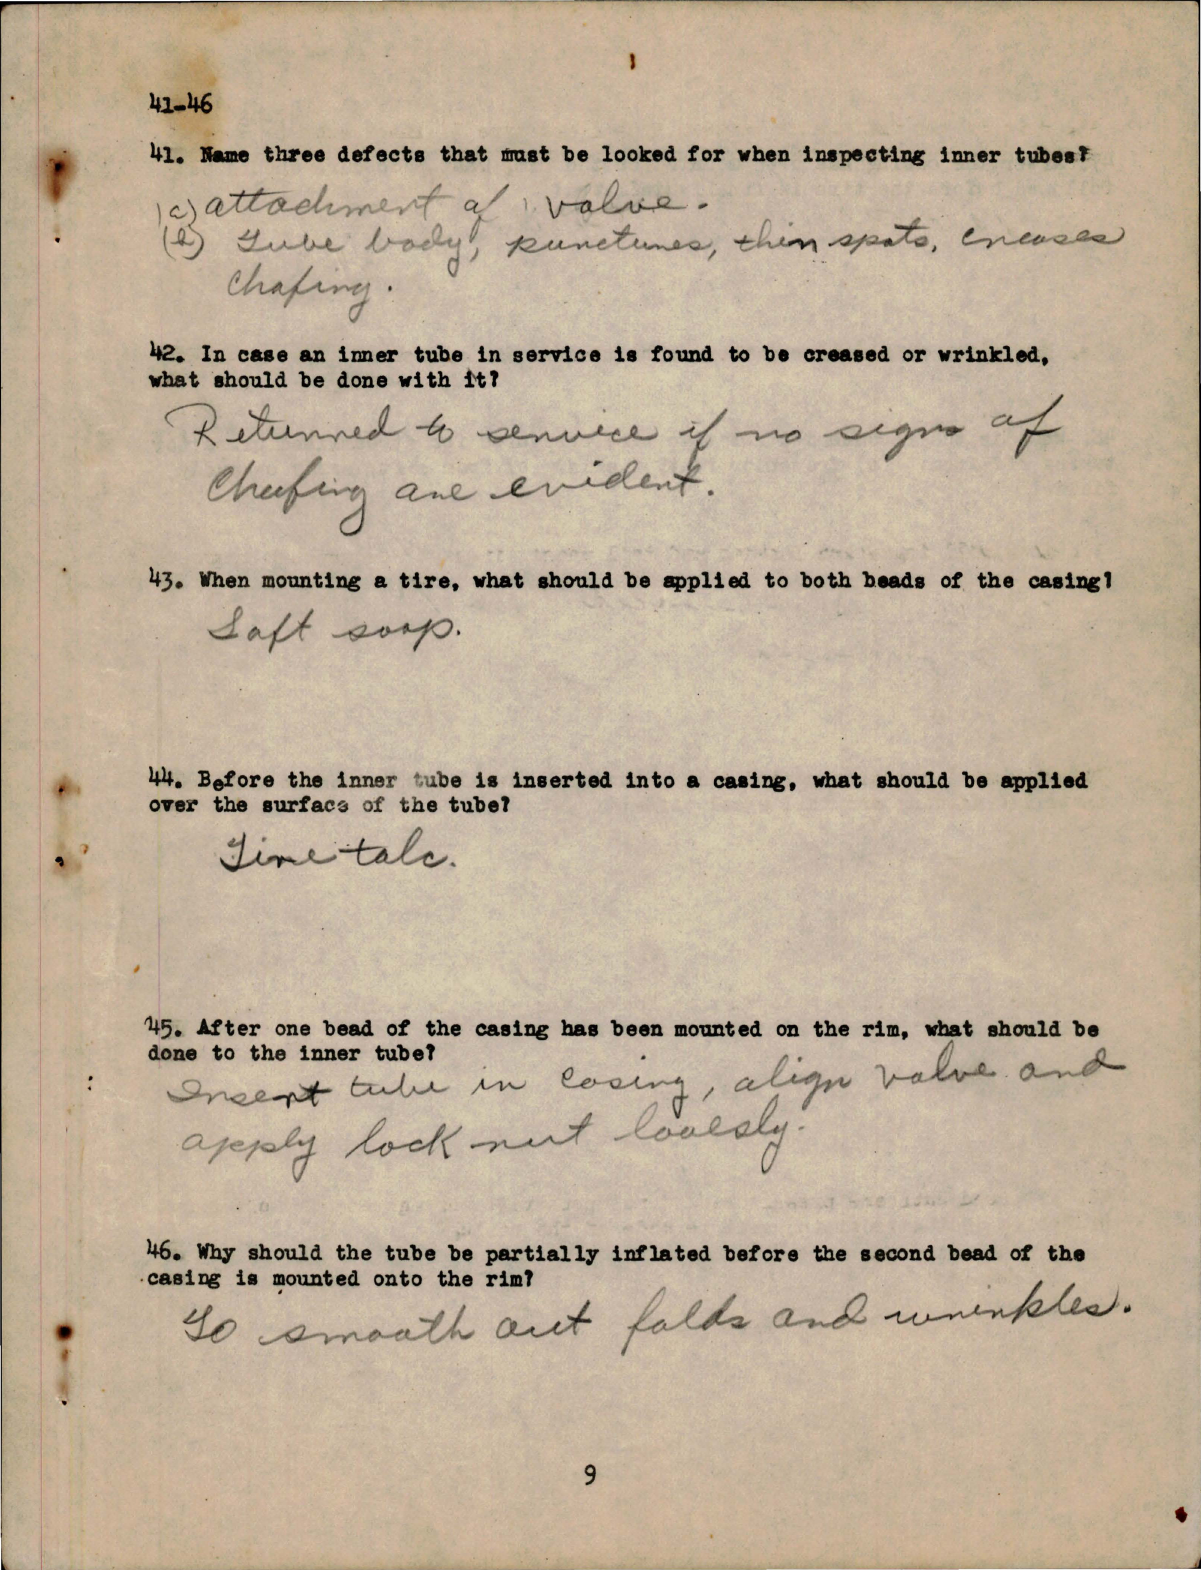 41-46
41. Name three defects that must be looked for when inspecting inner tubes?
(a) attachment of valve.
(b) Tube body, punctures, thin spots, creases
Chafing.
42. In case an inner tube in service is found to be creased or wrinkled,
what should be done with it?
Returned to service if no signs of
Chafing are evident.
43. When mounting a tire, what should be applied to both beads of the casing?
Soft soap.
44. Before the inner tube is inserted into a casing, what should be applied
over the surface of the tube?
Tire talc.
45. After one bead of the casing has been mounted on the rim, what should be
done to the inner tube?
Insert tube in casing, align valve and
apply lock nut loolsly.
46. Why should the tube be partially inflated before the second bead of the
casing is mounted onto the rim?
To smooth out folds and wrinkles.
9